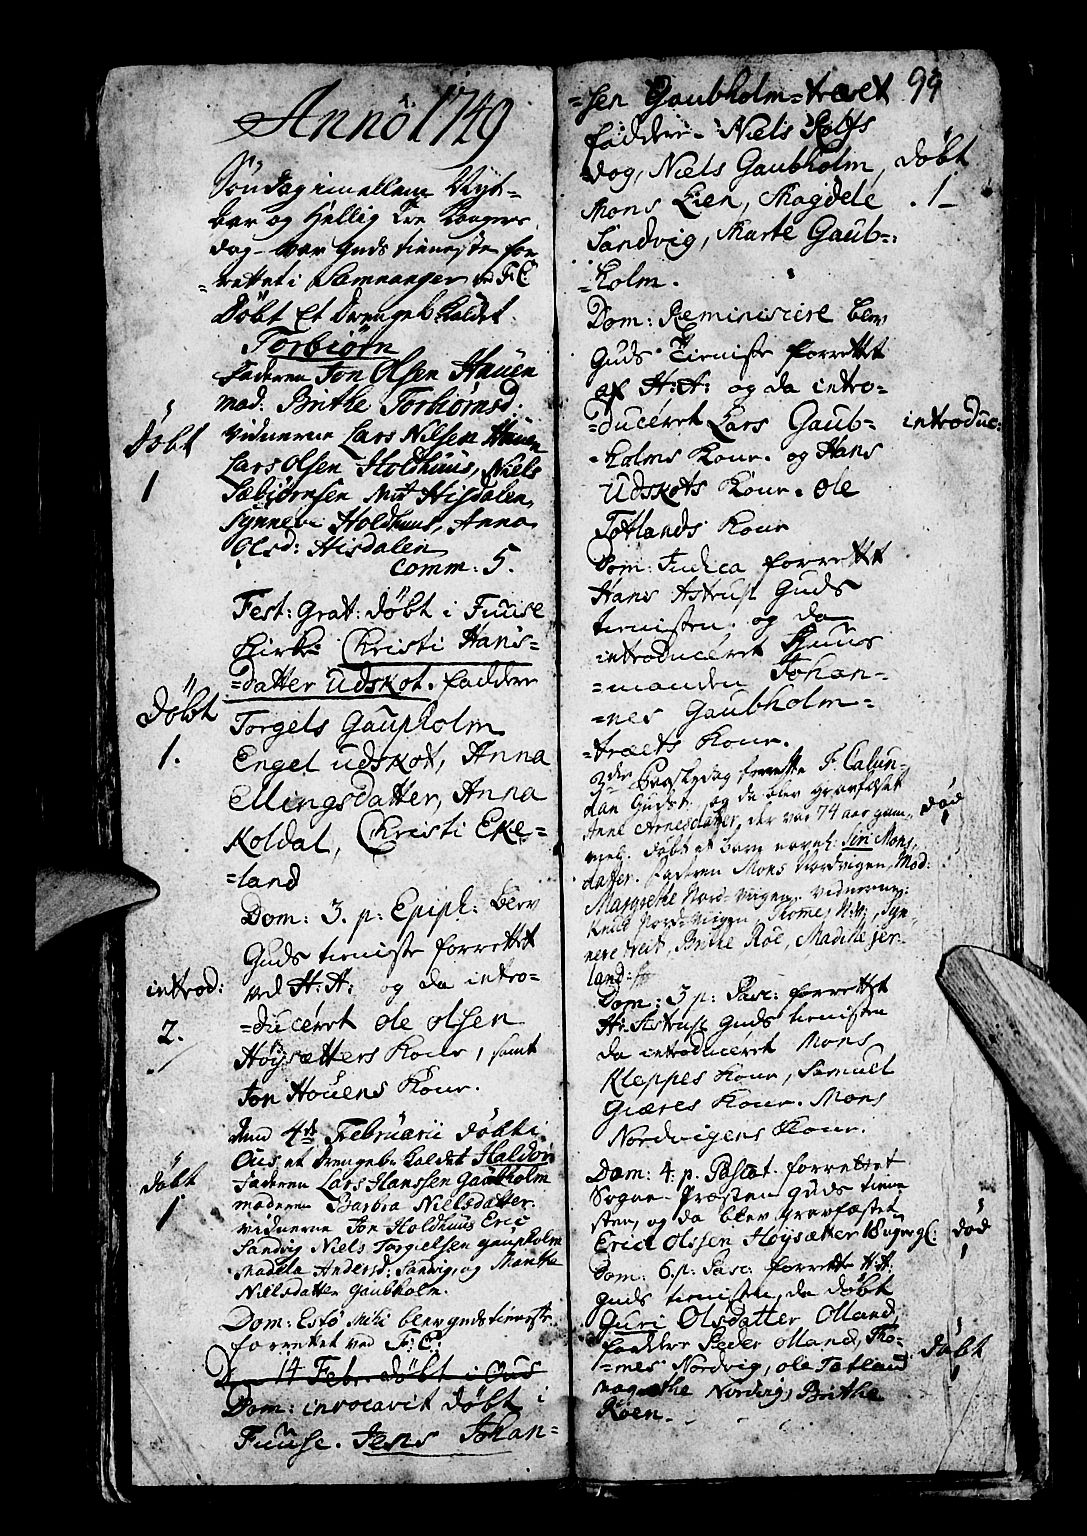 Anno 1749
Søndag imellem Nyt-
har og Hellig Tre Konger
dag var Guds tieneste for
=rettet i Samnanger ved F: C
Døbt Et Drengeb: kaldet
Torbiørn
faderen Jon Olsen Hauen
mod. Brithe Torbiørnsd.
Døbt
1
vidnerne Lars Nilsen Hauen
Lars Olsen Holdhuus, Niels
Sæbiørnsen Hisdalen,
Synneve Holdhuus, Anna
Olsd: Hisdalen
Comm: 5.
Fest: Grat: døbt i Fuuse
Kirke Christi Hans-
=datter Udskot. faddere
Døbt
1.
Torgels Gaupholm
Engel Udskot, Anna
Ellingsdatter, Anna
Koldal, Christi Eke-
=land
Dom: 3. p: Epiph: blev
Guds tieniste forrettet
ved H: A: og da intro-
introd:
2.
=duceret Ole Olsen
Høysætters Kone, samt
Jon Houens Kone.
den 4de Februarii døbt i
Døbt
1
Ous et Drengeb. kaldet Haldor
faderen Lars Hanssen Gaubholm
moderen Barbra Nielsdatter.
vidnerne Jon Holdhuus Eric
Sandvig Niels Torgielsen Gaupholm
Madela Andersd: Sandvig, og Marthe
Nielsdatter Gaubholm.
Dom: Esto Mihi blev guds tieneste
forrettet ved F: C:
Den 14 Febr. døbt i Ous
Dom: invocavit døbt i
Fuuse. Jens Johan-
99
=sen Gaubholm=træet
faddere Niels Rolfs
dog, Niels Gaubholm, døbt
Mons Lien, Magdele . 1-
Sandvig, Marte Gaub-:
=holm.
Dom: Reminiscere blev
Guds Tieniste forrettet
af H: A: og da intro-
=duceret Lars Gaub- introduc:
=holms Kone. og Hans
Udskots Kone. Ole
Tøtlands Kone
Dom: Judica forrettet
Hans Astrup Guds
tienisten. og da
introduceret Huus
=manden Johan-
=nes Gaubholm-
=træets Kone.
2den Paaskedag forrette F. Calun-
dan Gudst. og da blev gravfæstet
Anne Arnesdatter, der var 74 aar gam. død
mel. døbt et barn navnl: Siri Mons,
datter. fadren Mons Nordvigen, Mod:
Margrethe Nord-viigen. vidnerne:
Knud Nord-viigen, Thome, N: N:, Syn-
neve Tveit, Brithe Røe, Madelle Jer-
land:
Dom: 3 p: Pasc: forrettet
Hr: Astrup Guds tienisten
da introduceret Mons
Kleppes Kone, Samuel
Giæres Kone. Mons
Nordvigens Kone.
Dom: 4. p. Pascat. forrettet
Sogne-Præsten Guds tiene
sten, og da blev gravfæstet
Erich Olssen Høysætter 18 uger gl: død
1
Dom: 6. p: Pasc: forrette H: A:
Guds tienisten, da døbt
Guri Olsdatter Olland,
faddere Peder Olland, Tho- døbt
=mes Nordvig, Ole Tøtland 1
Magrethe Nordvig, Brithe
Røen.